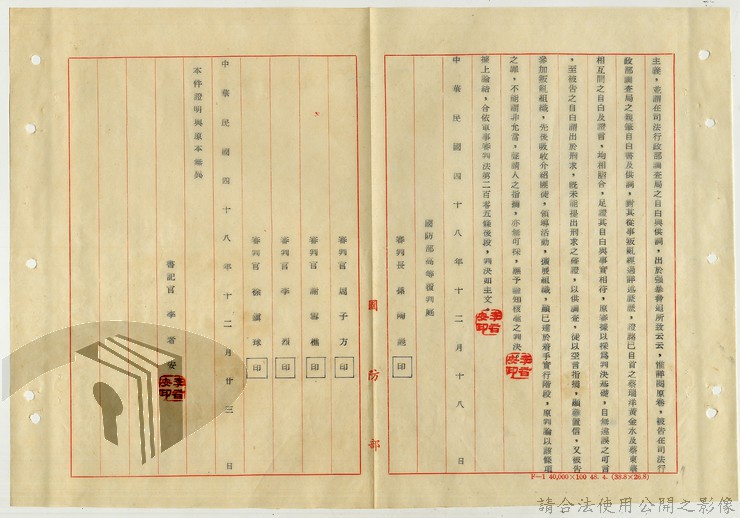 主義，並謂在司法行政部調查局之自白與供詞，出於強暴脅迫所致云云，惟詳閱原卷，被告在司法行
政部調查局之親筆自白書及供詞，對其從事叛亂經過詳述歷歷，證諸已自首之蔡瑞洋黃金水及蔡東榮
相互間之自白及證言，均相脗合，足證其自白與事實相符，原審據以採為判決基礎，自無違誤之可言
，至被告之自白謂出於刑求，既未能提出刑求之佐證，以供調查，徒以空言指摘，顯難置信，又被告
參加叛亂組織，先後吸收介紹匪徒，領導活動，擴展組織，顯已達於着手實行階段，原判論以該條項
之罪，不能謂非允當，聲請人之指摘，亦無可採，應予諭知核准之判決。
據上論結，合依軍事審判法第二百零五條後段，判決如主文。
中華民國四十八年十二月十八日
國防部高等覆判庭
審判長 孫
印
審判官 周子方 印
審判官 謝
印
審判官 李
烈 印
審判官 徐
球 印
中華民國四十八年十二月廿三日
本件證明與原本無異
書記官 李若安
國防部
F—1 40,000×100 48. 4. (38.8×26.8)
請合法使用公開之影像